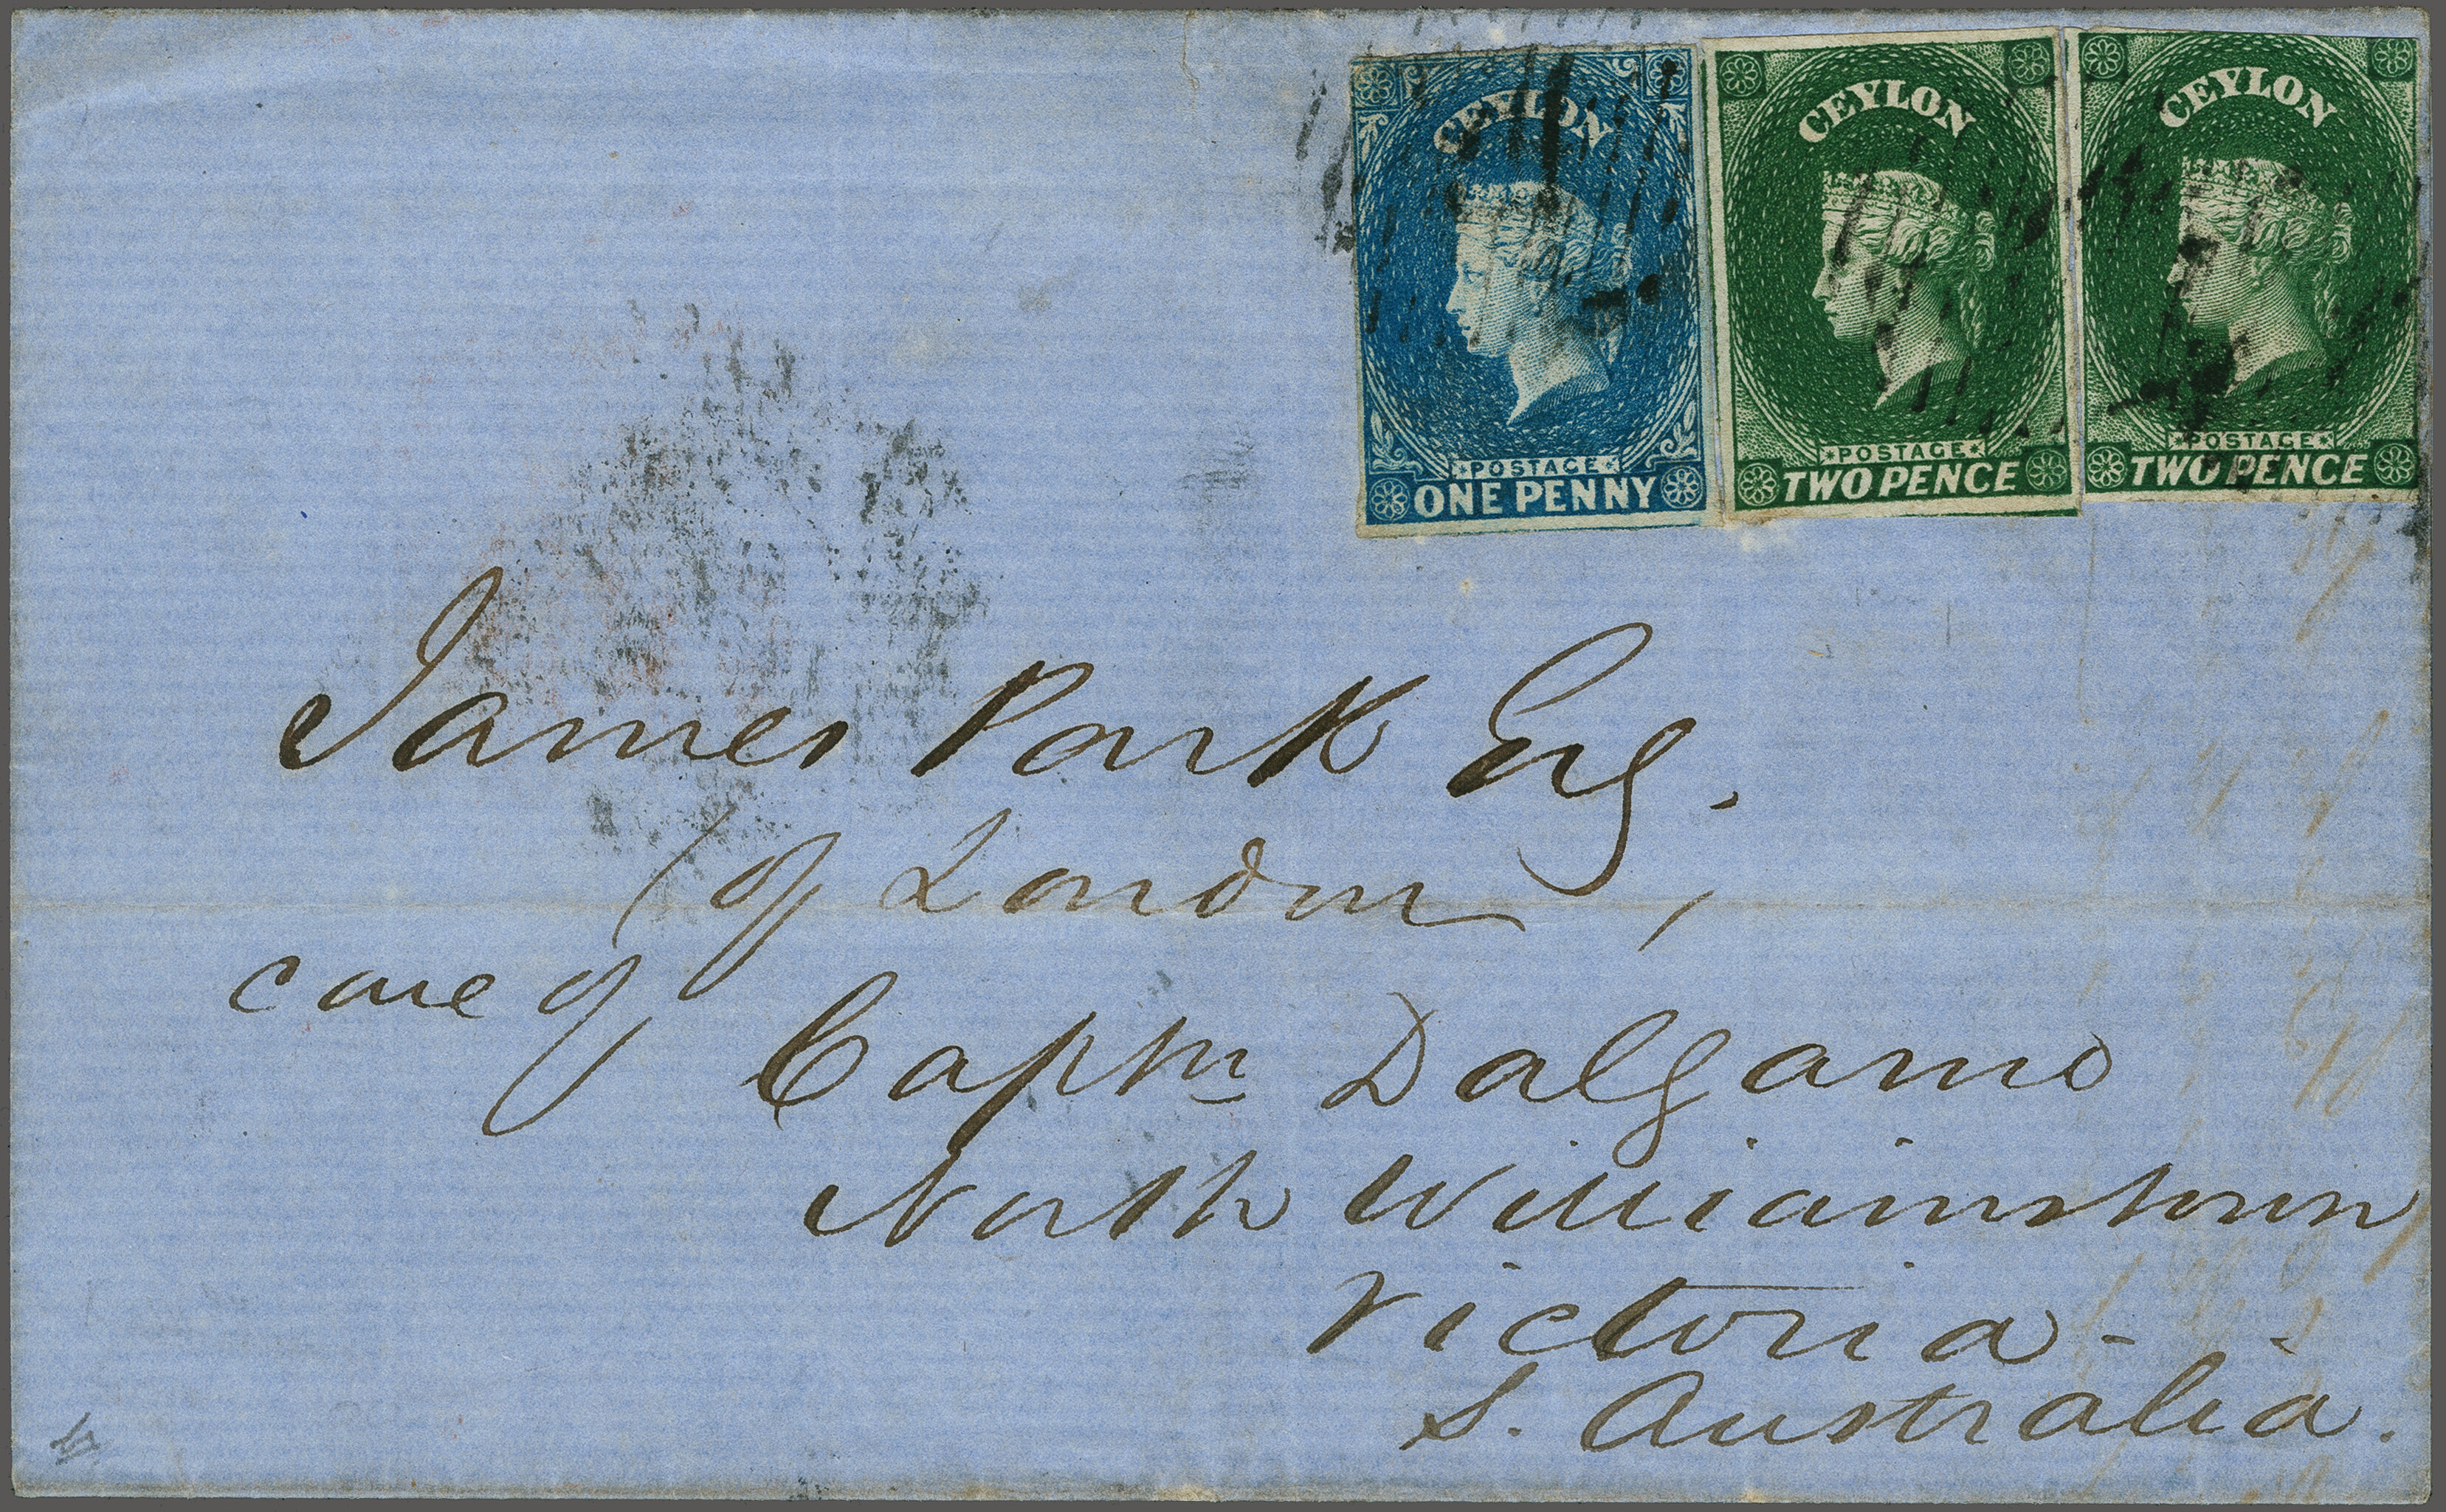 CEYLON
POSTAGE
ONE PENNY
CEYLON
POSTAGE
TWO PENCE
CEYLON
POSTAGE
TWO PENCE
James Park Esq.
(of London,
care of
Captn Dalgarno
North Williamstown
Victoria -
S. Australia.